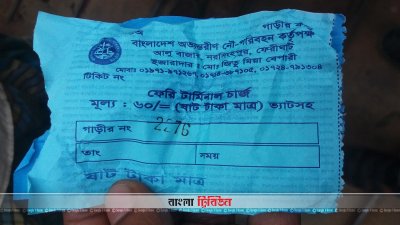 গাড়ীর ন
বাংলাদেশ অভ্যন্তরীণ নৌ-পরিবহন কর্তৃপক্ষ
আলু বাজার, নরসিংহপুর, ফেরীঘাট
ইজারাদার : মোঃ জিতু মিয়া বেপারী
টিকিট নং
ফেরি টার্মিনাল চার্জ
মূল্য : ৬০/= (ষাট টাকা মাত্র) ভ্যাটসহ
গাড়ীর নং 2276
তাং সময়
ষাট টাকা মাত্র
বাংলা ট্রিবিউন